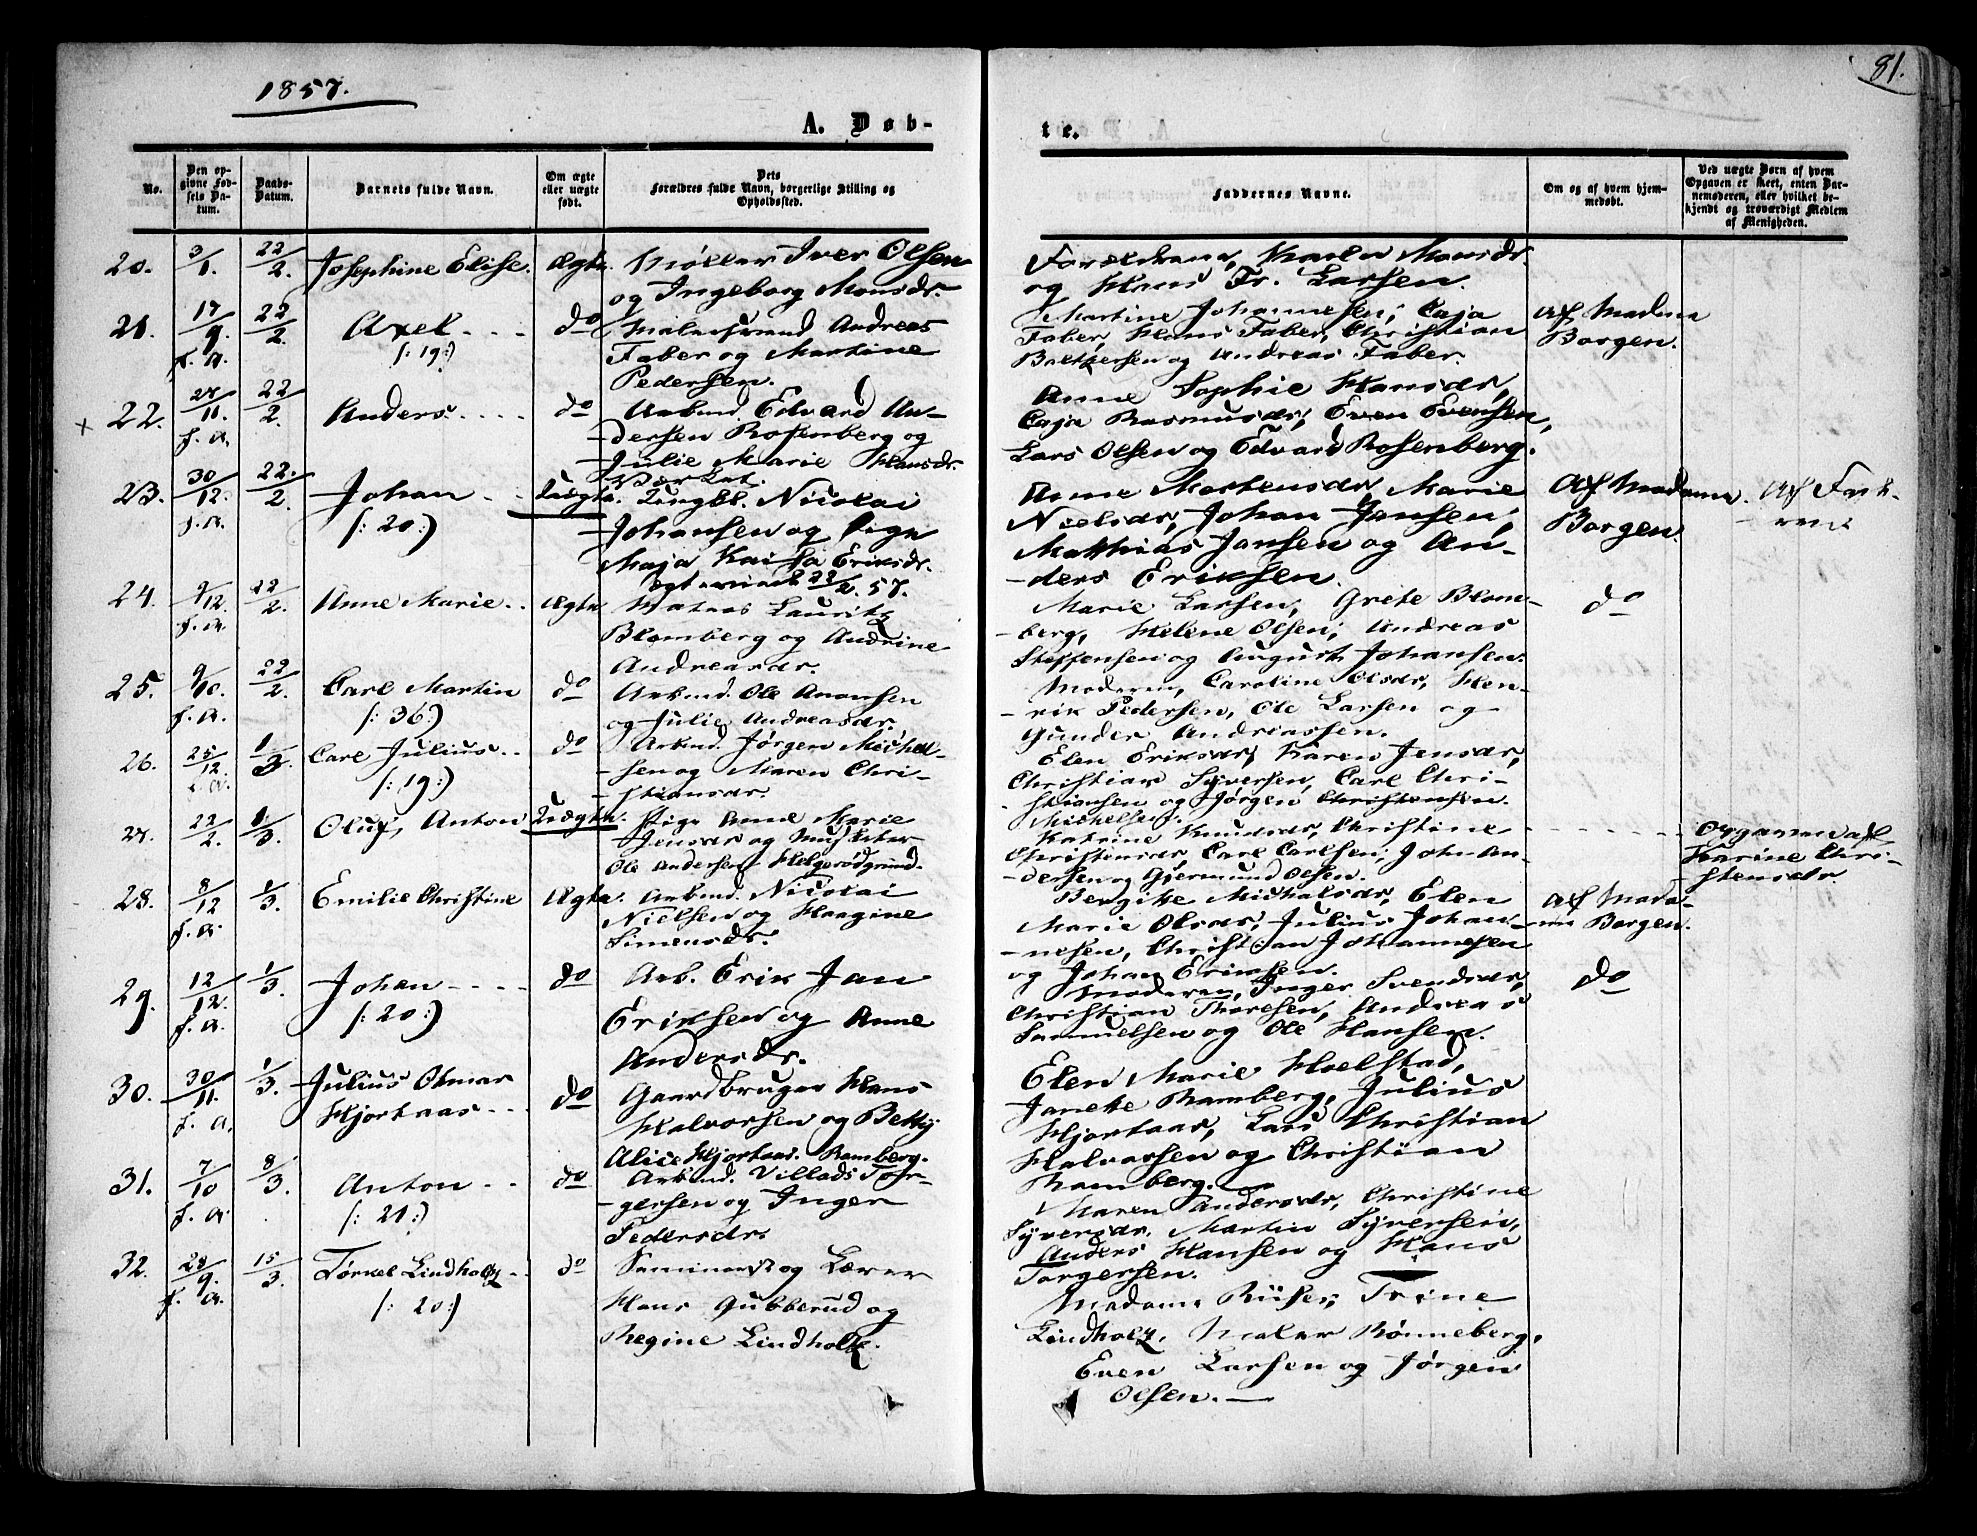 1857.
81.
A. Døb-
te.
No.
Den op-
givne Fød-
sels Da-
tum.
Daabs-
Datum.
Barnets fulde Navn.
Om ægte
eller uægte
født.
Dets
Forældres fulde Navn, borgerlige Stilling og
Opholdssted.
Faddernes Navne.
Om og af hvem hjem-
medøbt.
Ved uægte Børn af hvem
Opgaven er skeet, enten Bar-
nemoderen, eller hvilket be-
kjendt og troværdigt Medlem
af Menigheden.
20. 3/1. 22/2. Josephine Elise. Ægte. Møller Iver Olsen
og Ingeborg Monsdr.
Forældrene, Karen Monsdr.
og Hans Fr. Larsen.
21. 17/9. f. A. 22/2. Axel
/: 19 :/
do Malersvend Andreas
Faber og Martine
Pedersen.
Martine Johannesen, Caja
Faber, Hans Faber, Christian
Balthersen og Andreas Faber.
Af Madam
Borgen.
x 22. 27/11. f. A. 22/2. Anders
do Arbmd. Edvard An-
dersen Rosenberg og
Julie Marie Hansdr.
Anne Sophie Hansdr,
Caja Rasmusdr, Even Evensen,
Lars Olsen og Edvard Rosenberg.
23. 30/12. f. A. 22/2. Johan
/: 20 :/
Uægte. Ungkl. Nicolai
Johansen og Pige
Maja Kaisa Eriksdr.
22/2. 57.
Anne Mortensdr, Marie
Nielsdr, Johan Jansen,
Matthias Jansen og An-
ders Eriksen.
Af Madame
Borgen.
24. 9/12. f. A. 22/2. Anne Marie
Ægte Matros Lauritz
Blomberg og Andrine
Andreasdr.
Marie Larsen, Grete Blom-
berg, Helene Olsen, Andreas
Steffensen og August Johansen.
do
25. 9/10. f. A. 22/2. Carl Martin
/: 36 :/
do Arbmd. Ole Amonsen
og Julie Andreasdr.
Moderen, Caroline Olsdr, Hen-
rik Pedersen, Ole Larsen og
Gunder Andriassen.
26. 25/12. f. A. 1/3. Carl Julius
/: 19 :/
do Arbmd. Jørgen Michel-
sen og Maren Chri-
stiansdr.
Elen Eriksdr, Karen Jensdr,
Christian Syversen, Carl Chri-
stiansen og Jørgen Christensen.
Michelsen.
27. 22/2. 1/3. Oluf Anton
Uægte. Pige Anne Marie
Jensdr og Musketer
Ole Andersen Helgerødgrund.
Katrine Knudsdr, Christine
Christensdr, Carl Carlsen, Joh. An-
dersen og Gjermund Olsen.
Opgaven af
Karine Chri-
stensdr.
28. 8/12 f. A. 1/3. Emilie Christine
Ægte. Arbmd. Nicolai
Nielsen og Hargine
Simensdr.
Bergitte Michalsdr, Elen
Marie Olsdr, Julius Johan-
nesen, Christian Johannesen
og Johan Eriksen.
Af Mada-
me Borgen.
29. 12/12. f. A. 1/3. Johan
/: 20 :/
do Arb. Erik Jan
Eriksen og Anne
Andersdr.
Moderen, Inger Svendsdr,
Christian Thoresen, Andreas
Samuelsen og Ole Hansen.
do
30. 30/11. f. A. 1/3. Julius Otmar
Hjortaas
do Gaardbruger Hans
Halvorsen og Betty
Alice Hjortaas. Ramberg.
Elen Marie Hoelstad,
Janete Ramberg, Julius
Hjortaas, Lars Christian
Halvorsen og Christian
Ramberg.
31. 7/10 f. A. 8/3. Anton
/: 21 :/
do Arbmd. Villads Tor-
gersen og Inger
Pedersdr.
Maren Andersdr, Christine
Syversdr, Martin Syversen,
Anders Hansen og Hans
Torgersen.
32. 28/9. f. A. 15/3. Torkel Lindholtz
/: 20 :/
do Seminarist og Lærer
Hans Gubberud og
Regine Lindholtz.
Madame Riiser, Trine
Lindholtz, Maler Rønneberg,
Even Larsen og Jørgen
Olsen.